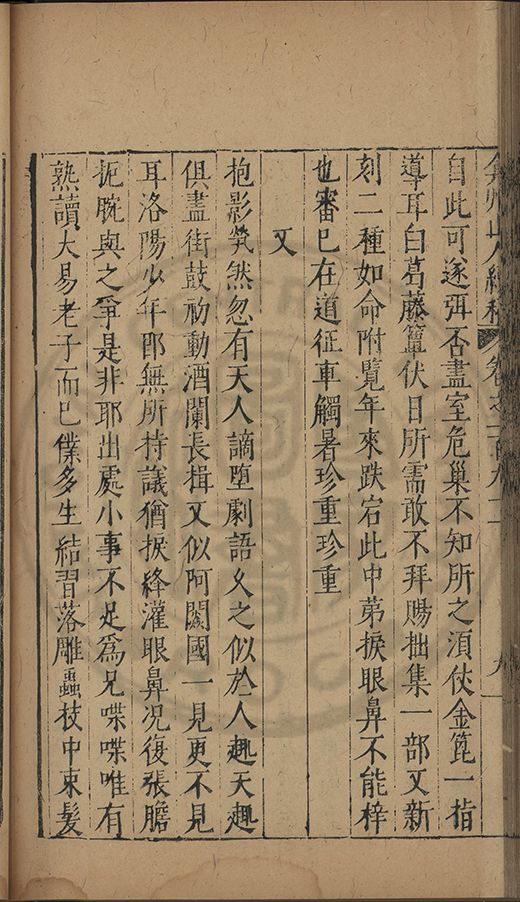 弇州山人續稿 卷之一百九十二 九
自此可遂弭否盡室危巢不知所之須仗金篦一指
導耳白葛藤簟伏日所需敢不拜賜拙集一部又新
刻二種如命附覽年來跌宕此中苐捩眼鼻不能梓
也審已在道征車觸暑珍重珍重
又
抱影煢然忽有天人謫墮劇語久之似於人趣天趣
俱盡街鼓初動酒闌長揖又似阿閦國一見更不見
耳洛陽少年郎無所持議猶捩絳灌眼鼻況復張膽
扼腕與之爭是非耶出處小事不足爲兄喋喋唯有
熟讀大易老子而已僕多生結習落雕蟲技中束髮